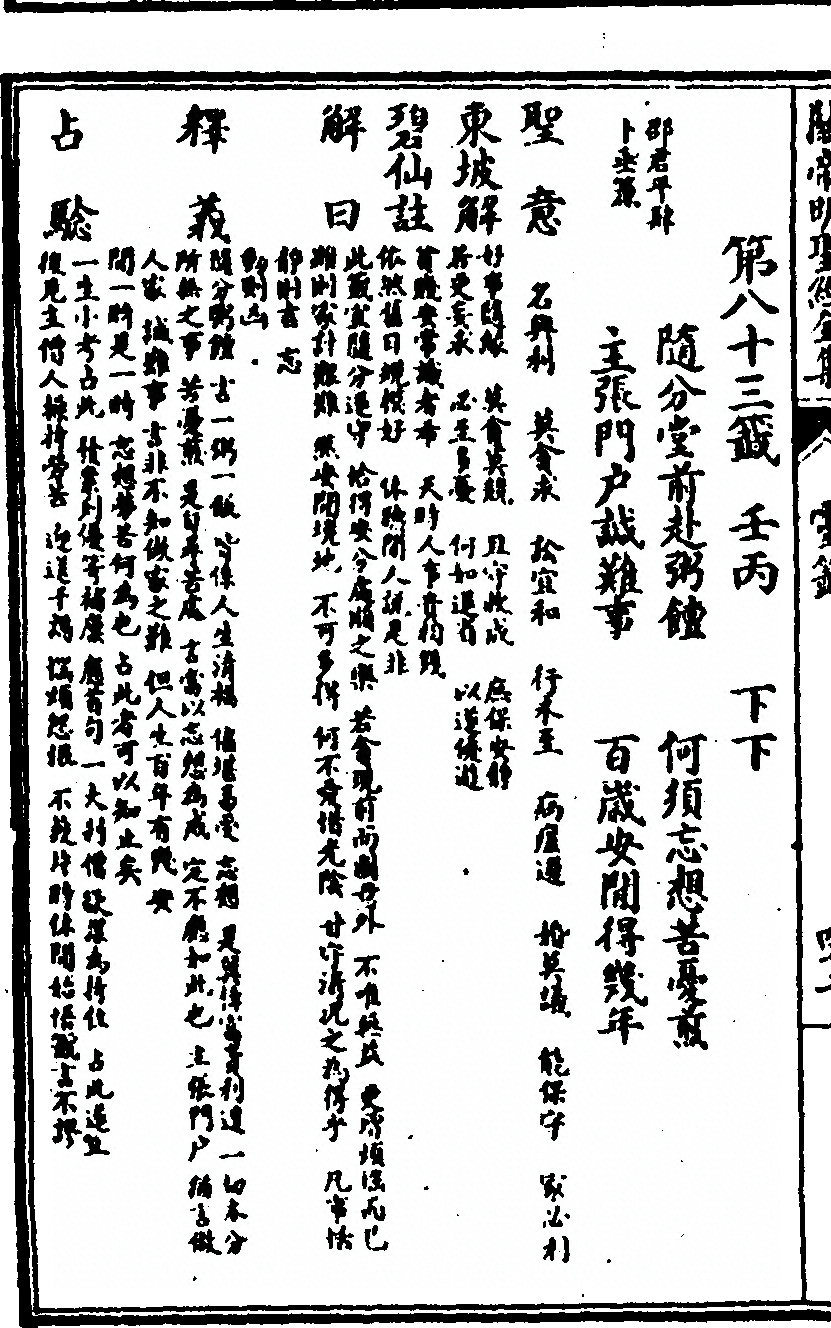 關帝明聖經全集
靈籤
第八十三籤 壬丙 下下
隨分堂前赴粥饘 何須忘想苦憂煎
主張門戶誠難事 百歲安閒得幾年
邵君平辭
卜垂簾
聖意 名與利 莫貪求 訟宜和 行未至 病瘟遲 婚莫議 能保守 家必利
東坡解 好事隨緣 莫貪莫競 且守此成 庶保安靜
若更妄求 必至多憂 何如退省 以道優游
碧仙註 貧賤安常識者希 天時人事貴相隨
依然舊日規模好 休聽閒人說是非
解曰 此籤宜隨分退守 始得安分處順之樂 若貪現前而圖身外 不惟無益 更濟煩惱而已
雖則家計艱難 無安閒境地 不可多得 何不愛惜光陰 甘守清況之為得乎 凡事恬
靜則吉 忘
動則凶
釋義 隨分粥饘 言一粥一飯 皆係人生清福 儘堪為愛 忘想 是冀倖富貴利達 一切本分
所無之事 苦憂煎 是自尋苦處 言富以忘想為成 定不能如此也 主張門戶 猶言做
人家 誠難事 言非不知做家之難 但人生百年有幾 安
閒一時是一時 忘想勞苦何為也 占此者可以知止矣
占驗 一生小考占此 發案列優等補廩 應首句 一大利僧欲謀為持住 占此逞為
後見主僧人操持勞苦 迎送千端 惱煩怨恨 不能片時休閒始悟籤言不謬